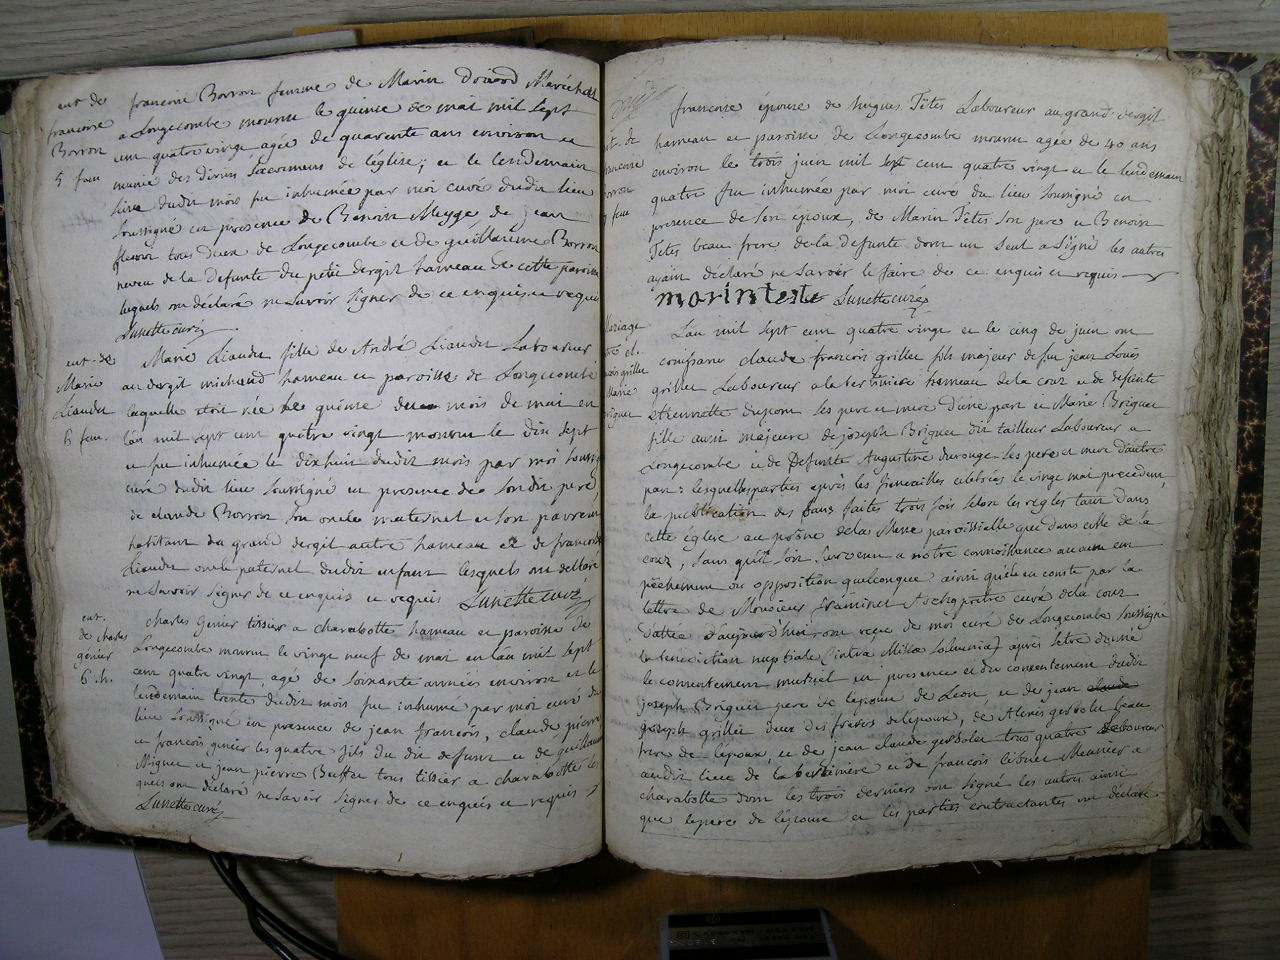 ent de
françoise
Borron
5 fem
françoise Borron femme de Marin Maréchal
a Longecombe mourut le quinse de mai mil sept
cent quatre vingt agée de quarente ans environ et
munie des divins Sacremens de l'église; et le lendemain
seise dudit mois fut inhumée par moi curé dudit lieu
soussigné en présence de Benoit Meyge de jean
tous deux de Longecombe et de guillaume Borron
neveu de la defunte du petit dergit hameau de cette paroisse
lesquels ont déclaré ne savoir signer de ce enquis et requis
Lunette curé
ent. de
Marie
Liaudet
6 fem.
Marie Liaudet fille de André Liaudet Laboureur
au dergit michaud hameau et paroisse de Longecombe
laquelle étoit née le quinse du mois de mai en
l'an mil sept cent quatre vingt mourut le dix sept
et fut inhumée le dixhuit dudit mois par moi
curé dudit lieu soussigné en presence de son dit pere,
de claude Borron son oncle maternel et son parrein
habitant du grand dergit autre hameau et de francois
Liaudet oncle paternel dudit enfant lesquels ont déclaré
ne savoir signer de ce enquis et requis Lunette curé
ent.
de charles
génier
6 h.
Charles Génier tissier a charabotte hameau et paroisse de
Longecombe mourut le vingt neuf de mai en l'an mil sept
cent quatre vingt, age de soixante années environ et le
lendemain trente dudit mois fut inhumé par moi curé du
lieu soussigné en presence de jean francois, claude pierre
et francois génier les quatre fils du dit defunt et de guillaume
Miguet et jean pierre Buffet tous tissier a charabotte les
quels ont déclaré ne savoir signer de ce enquis et requis
Lunette curé
et. de
francoise
Borron
fem
francoise épouse de hugues Têtes Laboureur au grand dergit
hameau et paroisse de Longecombe mourut agée de 40 ans
environ le trois juin mil sept cent quatre vingt et le lendemain
quatre fut inhumée par moi curé du lieu soussigné en
presence de son époux, de Marin Têtes son pere et Benoit
Têtes beau frere de la defunte dont un seul a signé les autres
ayant déclaré ne savoir le faire de ce enquis et requis
marin teste Lunette curé
Mariage
entre cl.
francois grillet
Marie
Briguet
L'an mil sept cent quatre vingt et le cinq de juin ont
comparu claude françois grillet fils majeur de feu jean Louis
grillet Laboureur a la bertiniere hameau de la cour et de defunte
Etiennette dupont ses pere et mere d'une part et Marie Briguet
fille aussi majeure de joseph Briguet dit tailleur Laboureur a
Longecombe et de defunte Augustine ses pere et mere d'autre
part: lesquelles parties après les fiancailles celebrées le vingt mai precedent,
la publication des bans faite trois fois selon les règles tant dans
cette église au prône de la Messe paroissialle que dans celle de la
cour, sans qu'il soit survenu a notre connoissance aucun em
pêchement ou opposition quelconque ainsi qu'il en conste par la
lettre de Monsieur Archiprêtre curé de la cour
dattée d'aujourd'hui ont recu de moi curé de Longecombe soussigné
la benediction nuptiale (intra Missæ solemnia) après s'être donné
le consentement mutuel en presence et du consentement dudit
joseph Briguet pere de l'epouse de Léon, et de jean claude
joseph grillet deux des freres de l'époux, de Alexis gesbolet beau
frere de l'époux, et de jean claude gesbolet tous quatre Laboureurs
audit lieu de la bertiniere et de francois Meunier a
charabotte dont les trois derniers ont signé les autres ainsi
que le pere de l'épouse et les parties contractantes ont déclaré